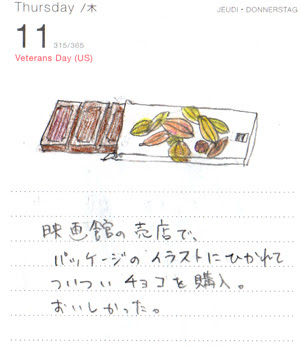 Thursday /木
JEUDI・DONNERSTAG
11 315/365
Veterans Day (US)
映画館の売店で、
パッケージのイラストにひかれて
ついつい チョコを購入。
おいしかった。